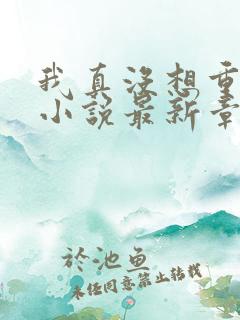 我真没想重
小说最新章
於池鱼
未经同意禁止转载